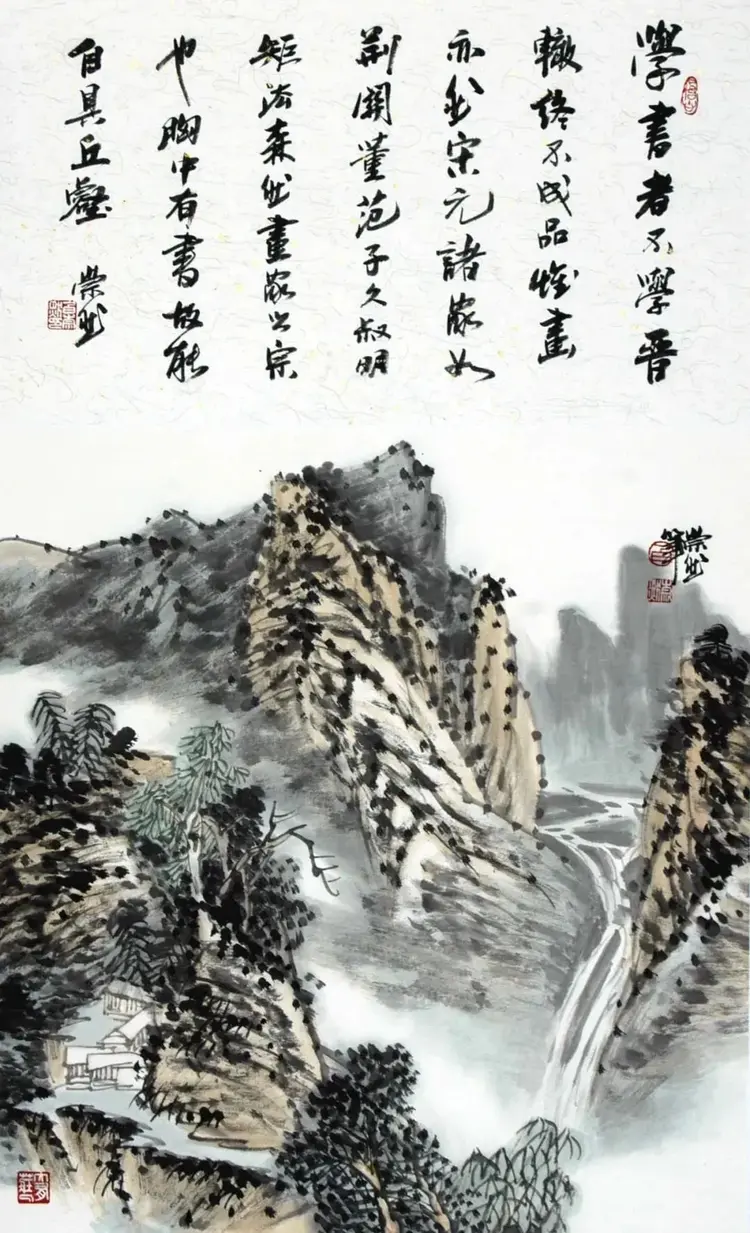 學書者不學晋
轍終不成品惟畫
亦然宋元諸家如
荆關董范子久叔明
矩法森然畫家之宗
也胸中有書故能
自具丘壑
崇然
崇然
筆